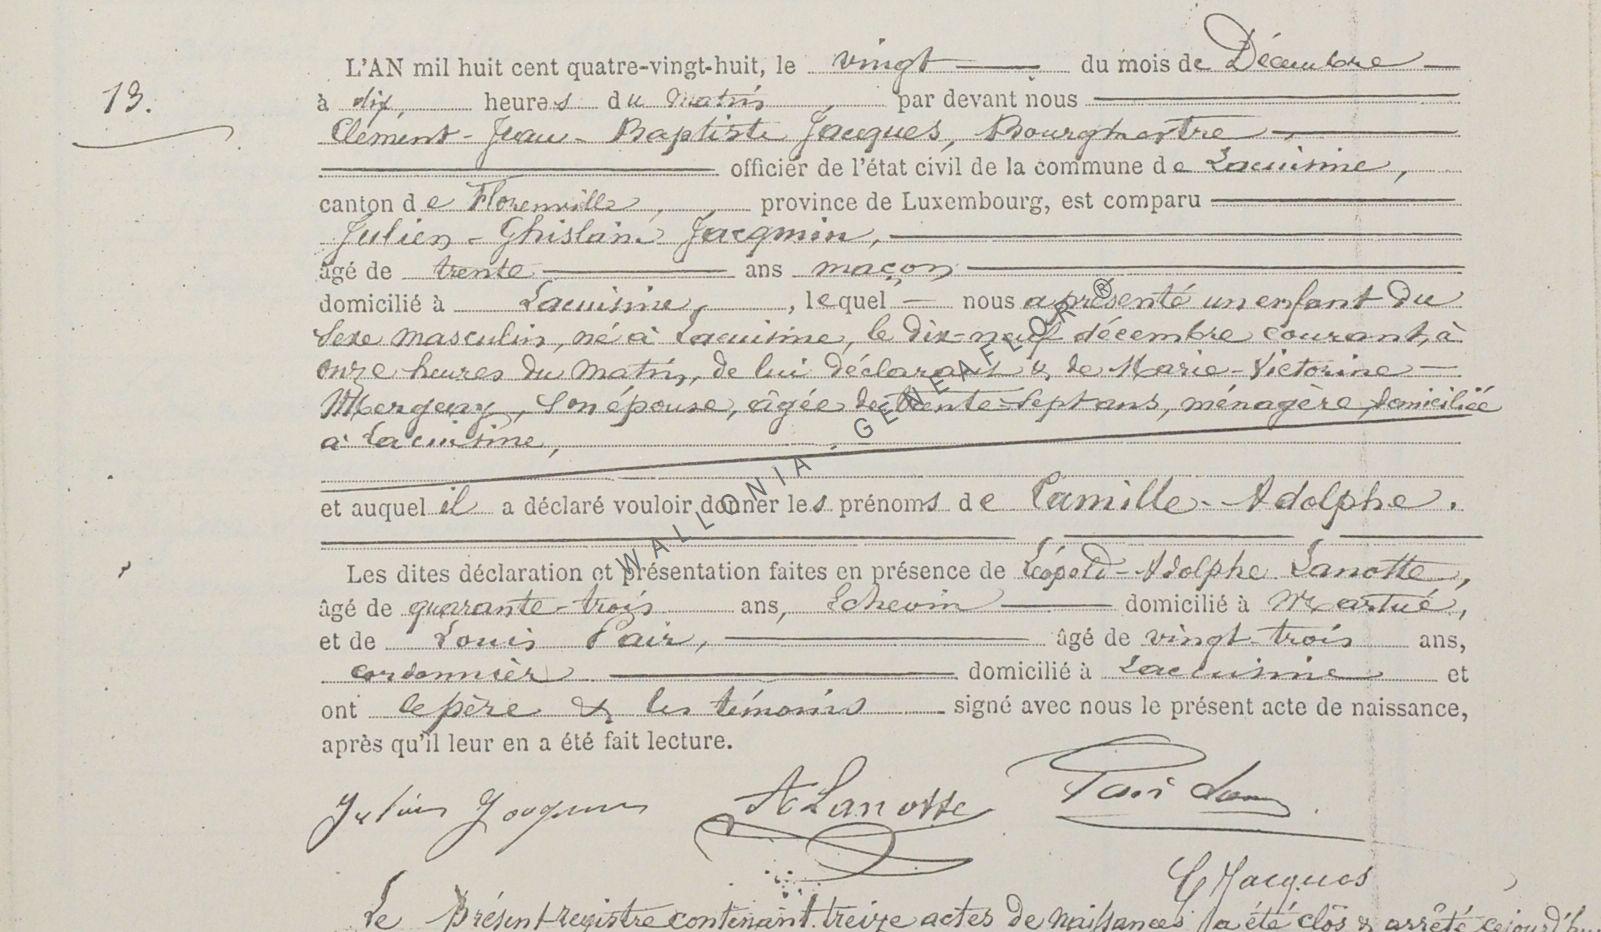 13.
L'AN mil huit cent quatre-vingt-huit, le vingt du mois de Décembre
à dix, heures du matin, par devant nous
Clément-Jean-Baptiste Jacques, Bourgmestre
officier de l'état civil de la commune de Lacuisine,
canton de Florenville, province de Luxembourg, est comparu
Julien-Ghislain Jacqmin,
âgé de trente ans maçon
domicilié à Lacuisine, , lequel nous a présenté un enfant du
sexe masculin, né à Lacuisine, le dix-neuf décembre courant, à
onze heures du matin, de lui déclarant & de Marie-Victorine
Mergeay, son épouse, âgée de trente-sept ans, ménagère, domiciliée
à Lacuisine,
et auquel il a déclaré vouloir donner les prénoms de Camille-Adolphe.
Les dites déclaration et présentation faites en présence de Léopold-Adolphe Lanotte,
âgé de quarante-trois ans, Echevin domicilié à Martué,
et de Louis Pair, âgé de vingt-trois ans,
cordonnier domicilié à Lacuisine et
ont le père & les témoins signé avec nous le présent acte de naissance,
après qu'il leur en a été fait lecture.
Julien Jacqmin A Lanotte Pair
C Jacques
Le présent registre contenant treize actes de naissances, a été clos & arrêté cejourd'hui
WALLONIA - GENEAFLOR ®